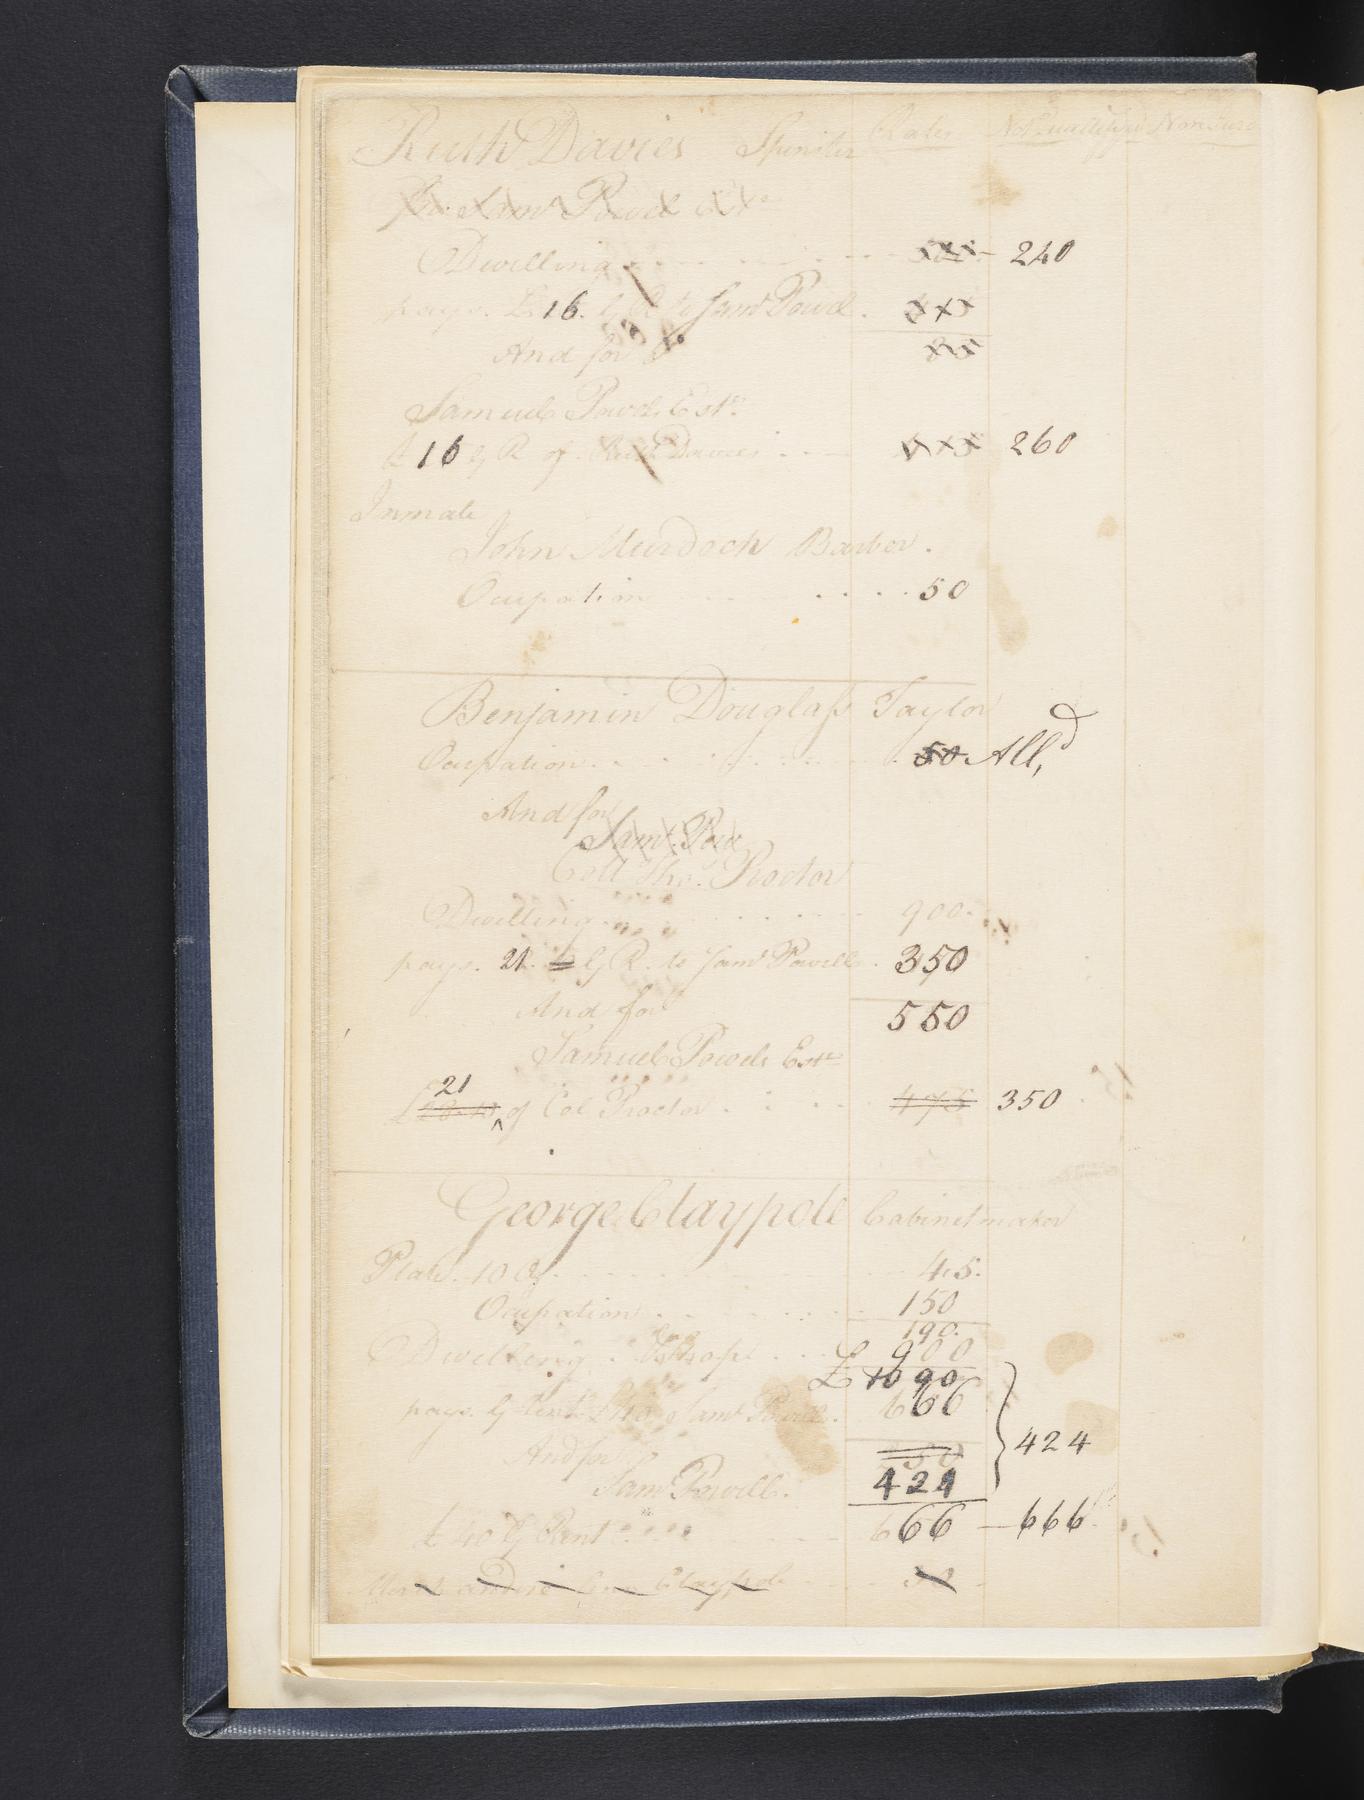 Ruth Davies Spinster Rates
Saml Powel Este
Dwelling 240
pays. £ 16. G R to Saml Powel.
And for
Samuel Powels Este
£ 16 G R of Ruth Davies 260
Inmate
John Murdoch Barber.
Ocupation 50
Benjamin Douglass Taylor
Ocupation 50 Alld
And for
Saml Pow
Coll Thos. Proctor
Dwelling 900.
pays. 21 G R. to Saml Powell. 350
And for 550
Samuel Powels Este
21
£ of Col Proctor 475 350
George Claypole Cabinetmaker
Plate. 10 Oz. 45.
Ocupation 150
190.
Dwelling & Shop 900
£ 1090
pays. G Rent £40 Saml Powell. 666
And for 424
Saml Powell. 424
£ 40 G Rent 666 — 666
Claypole